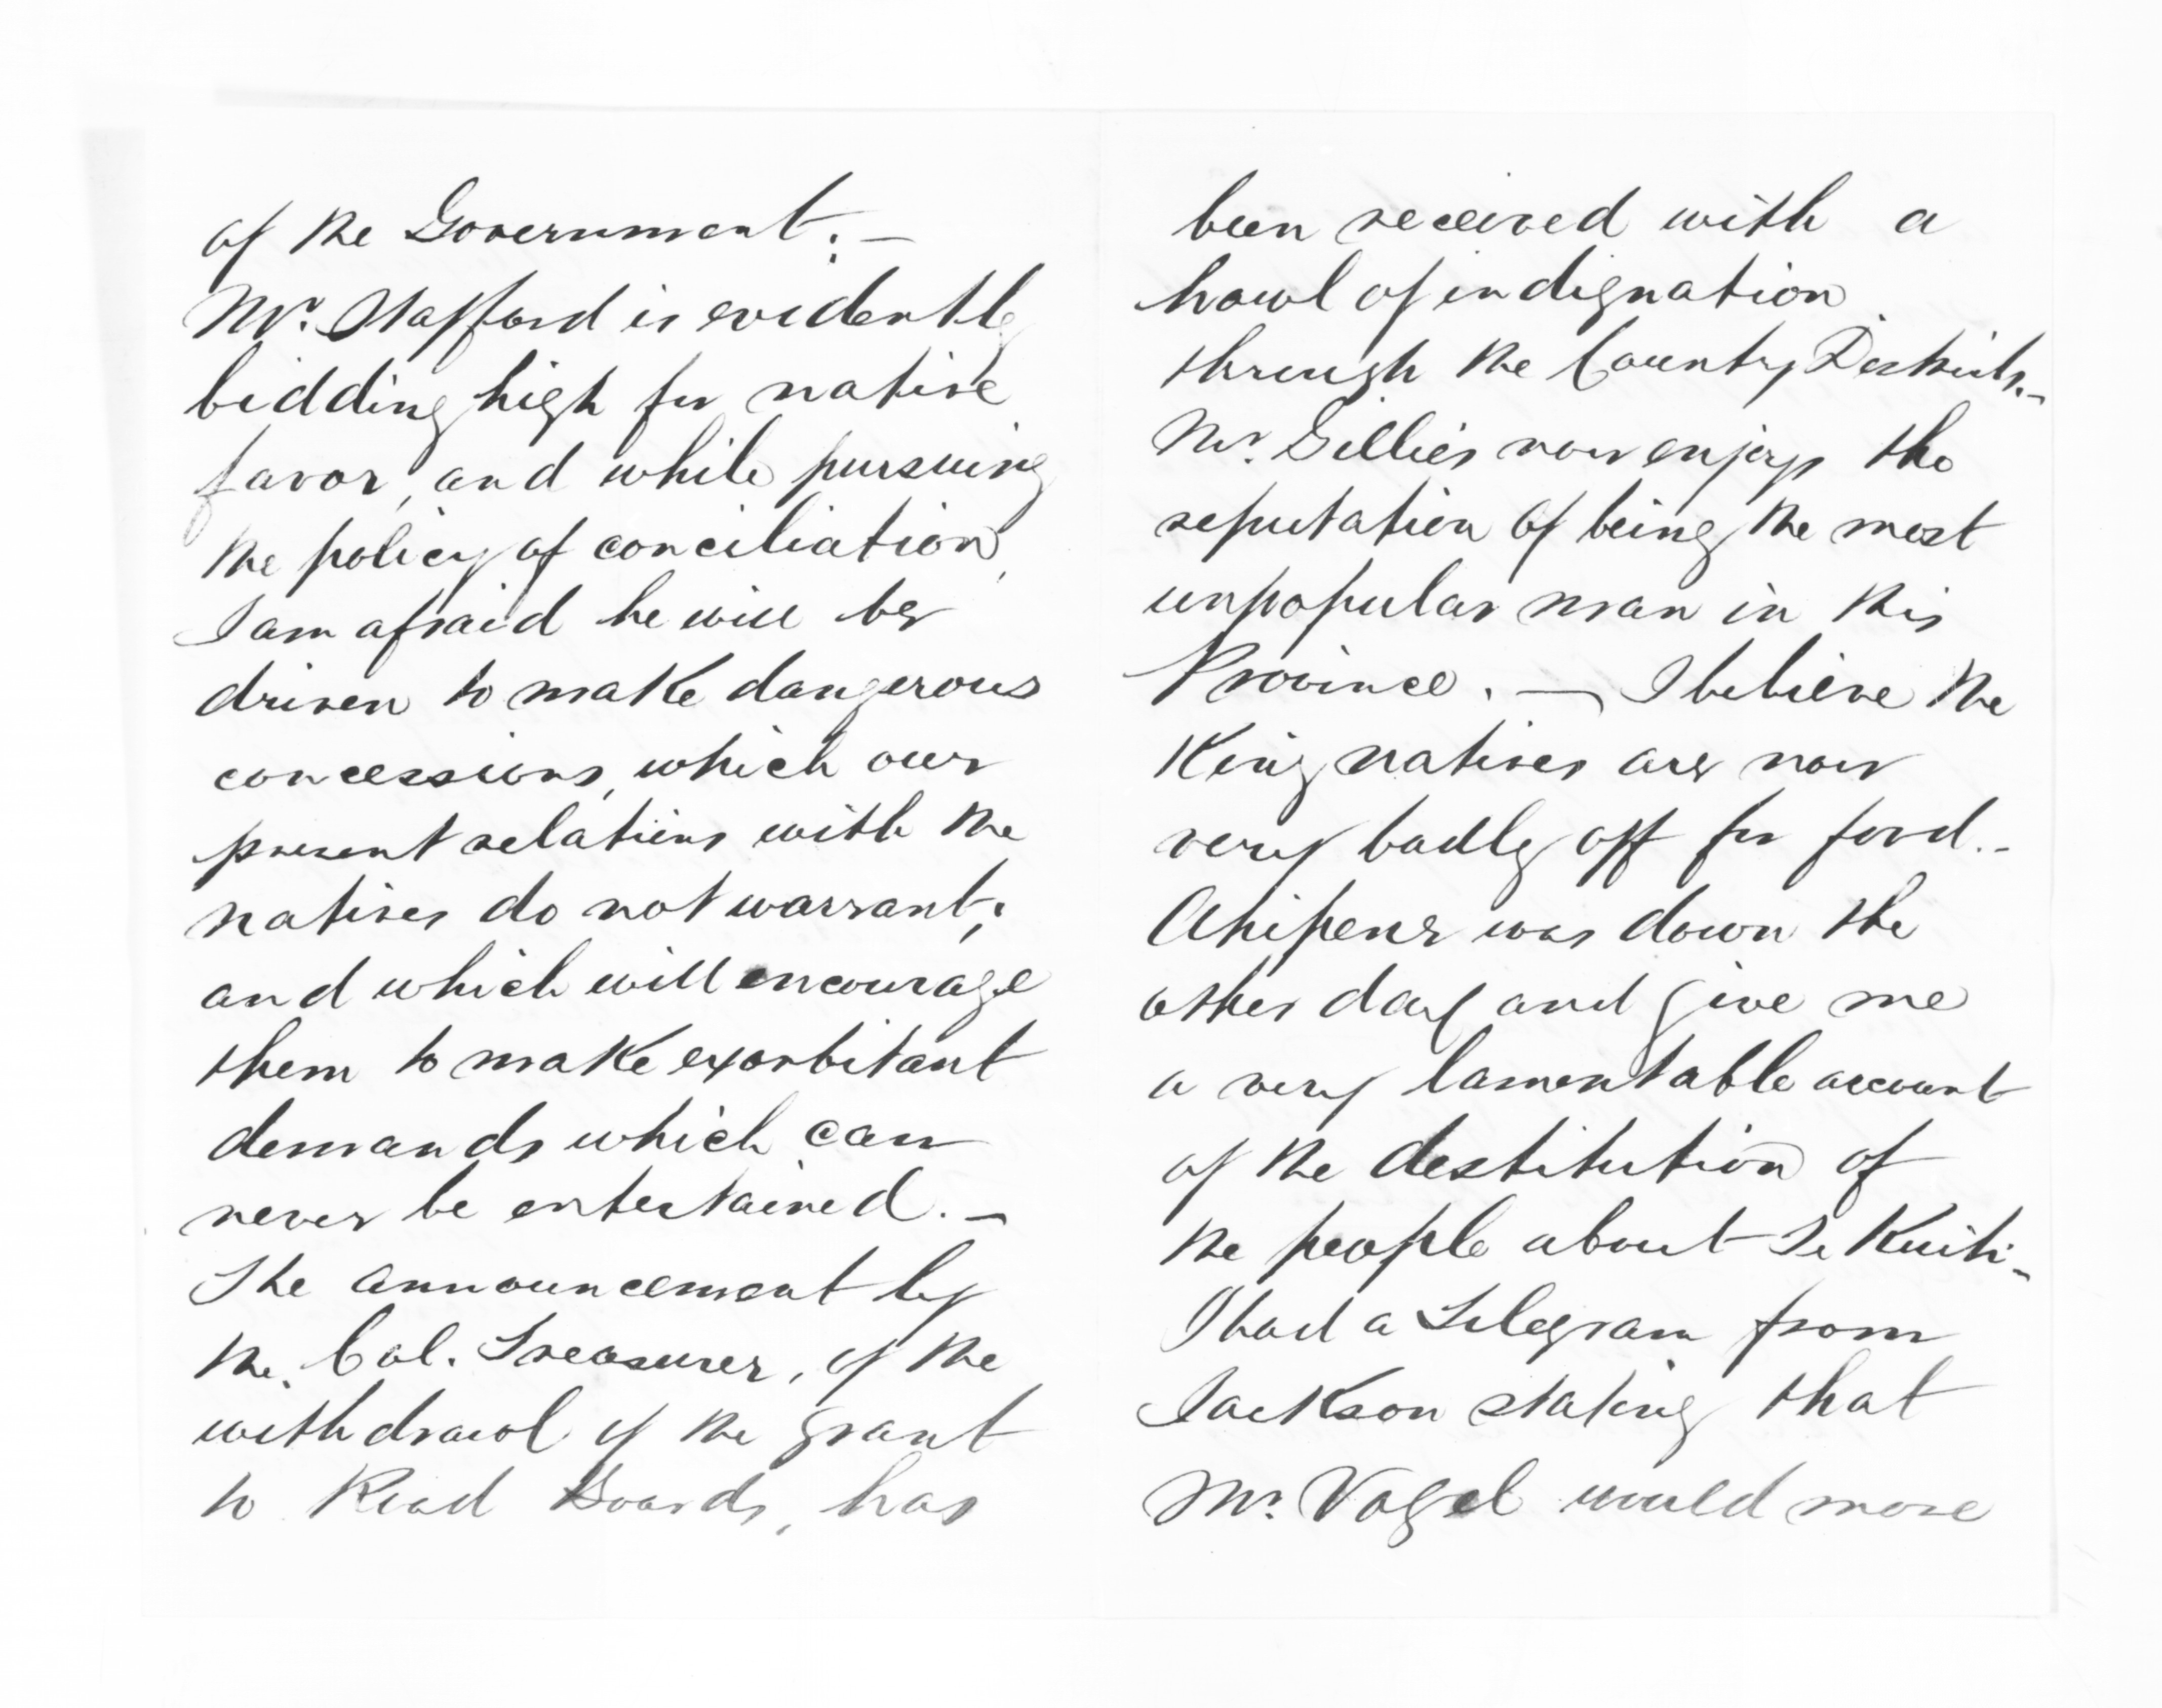 of the Government: —
Mr. Stafford is evidently
bidding high for native
favor, and while pursuing
the policy of conciliation,
I am afraid he will be
driven to make dangerous
concessions, which our
present relations with the
natives do not warrant;
and which will encourage
them to make exorbitant
demands which can
never be entertained. —
The announcement by
the Col. Treasurer, of the
withdrawl of the grant
to Road Boards, has
been received with a
howl of indignation
through the Country Districts. –
Mr. Gillies now enjoys the
reputation of being the most
unpopular man in this
Province. — I believe the
King natives are now
very badly off for food. –
Ahipene was down the
other day and give me
a very lamentable account
of the destitution of
the people about Te Kuiti –
I had a Telegram from
Jackson stating that
Mr. Vogel would move